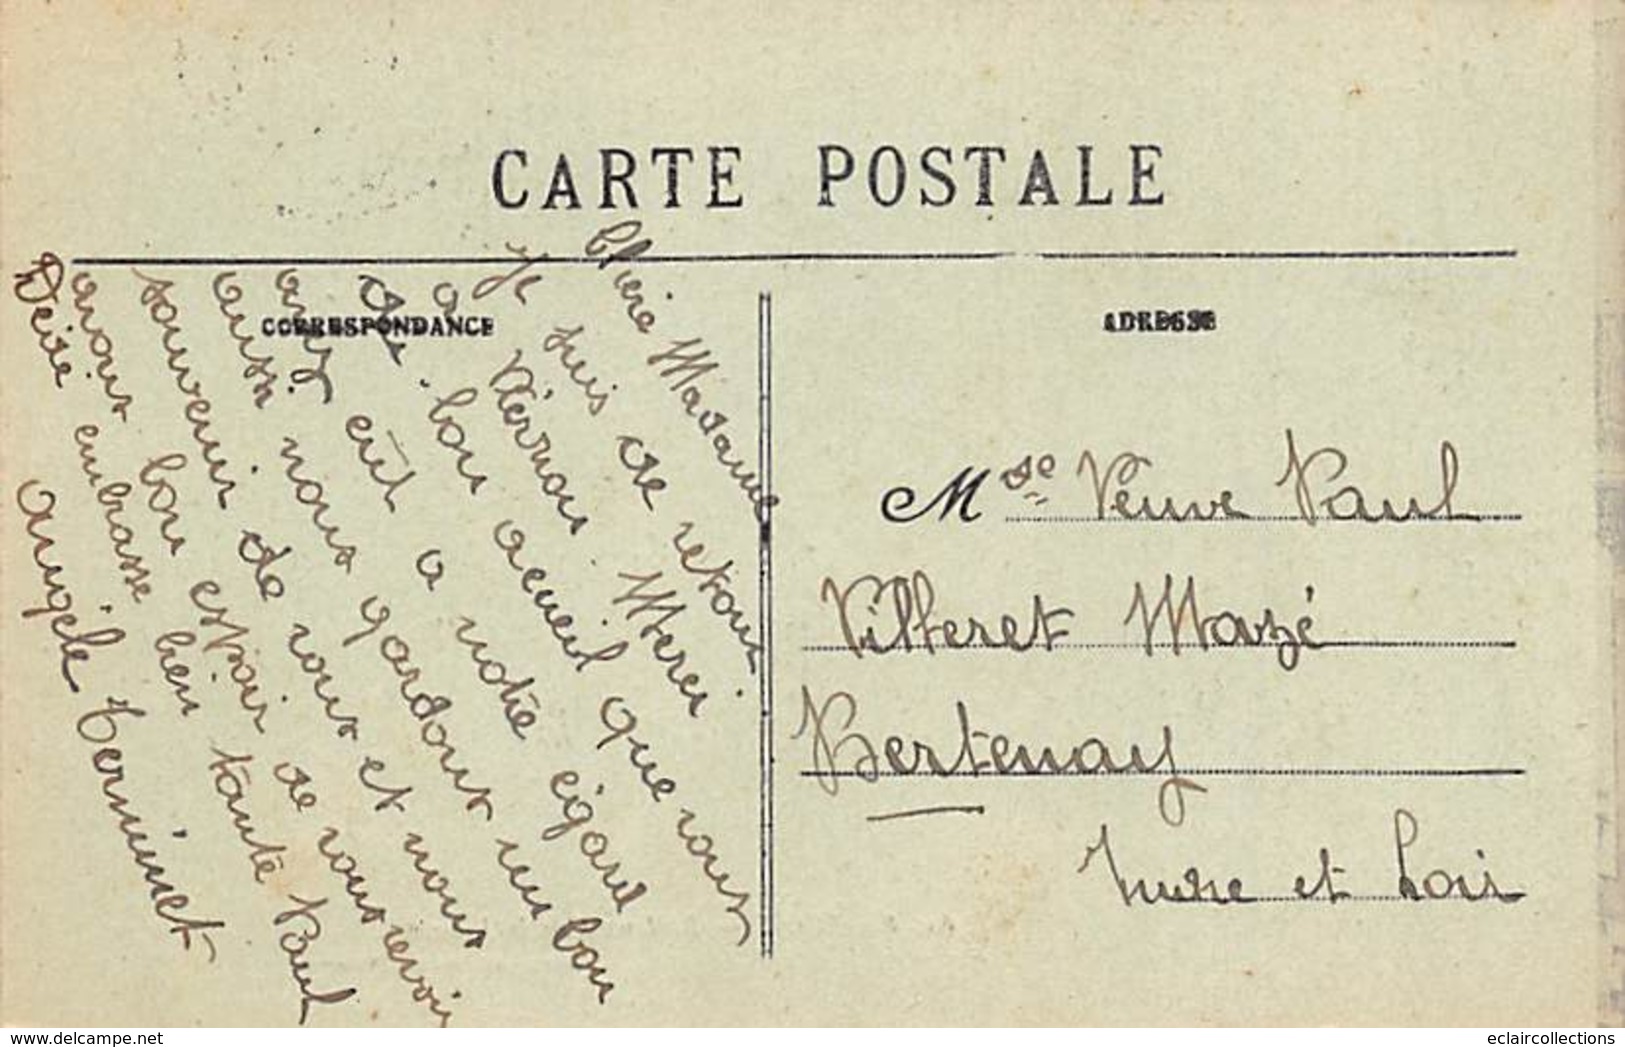 CARTE POSTALE
CORRESPONDANCE
ADRESSE
Chere Madame
Je suis de retour
a Vernou. Merci
du bon acueil que vous
avez eût a notre égard
aussi nous gardons un bon
souvenir de vous et nous
avons bon espoir de vous revoir
Dédé embrasse bien tante Paul
Angèle Terminet
Mde Veuve Paul
Villeret Mazé
Bertenay
Indre et Loir
delcampe.net
eclaircollections